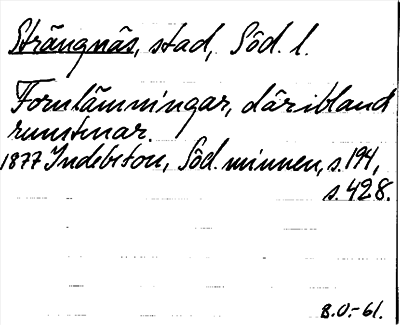 Strängnäs, stad, Söd. l.
Fornlämningar, däribland
runstenar.
1877 Indebetou, Söd. minnen, s. 194,
s. 428.
B.O.-61.